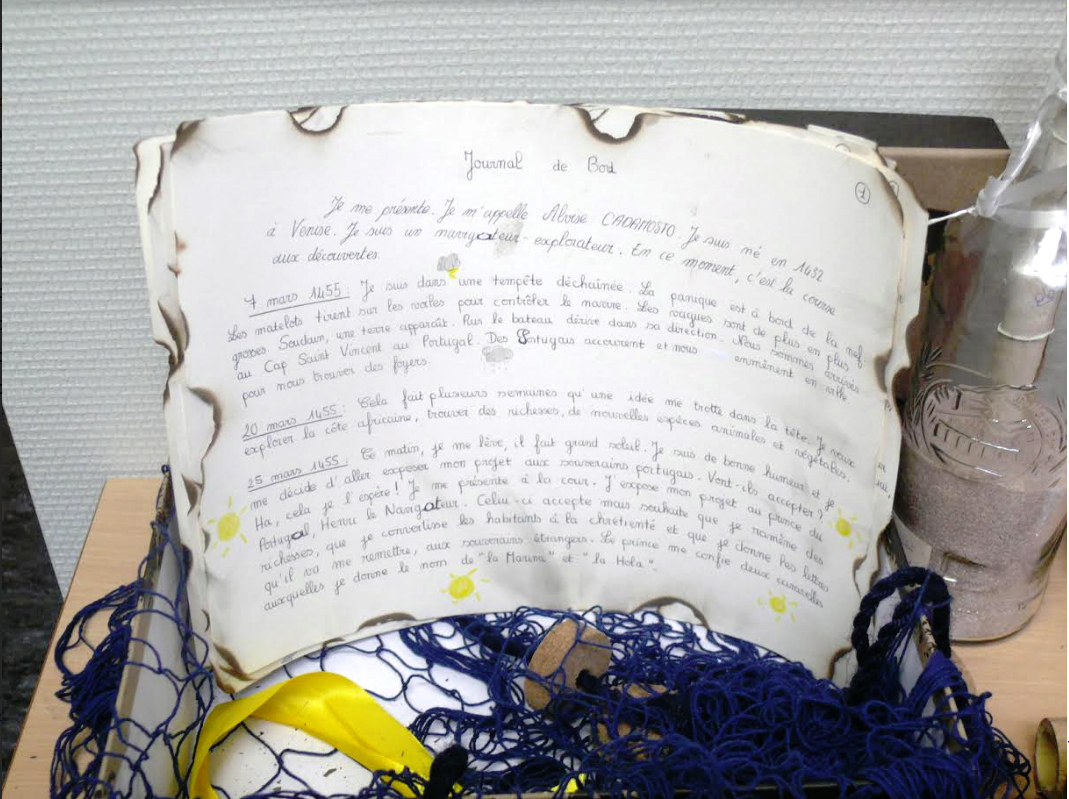 Journal de Bord
1
Je me présente. Je m'appelle Alvise CADAMOSTO. Je suis né en 1432
à Venise. Je suis un navigateur-explorateur. En ce moment, c'est la course
aux découvertes.
7 mars 1455 : Je suis dans une tempête déchaînée. La panique est à bord de la nef.
Les matelots tirent sur les voiles pour contrôler le navire. Les vagues sont de plus en plus
grosses. Soudain, une terre apparaît. Puis le bateau dérive dans sa direction. Nous sommes arrivés
au Cap Saint Vincent au Portugal. Des Portugais accourent et nous emmènent en ville
pour nous trouver des foyers.
20 mars 1455 : Cela fait plusieurs semaines qu'une idée me trotte dans la tête. Je veux
explorer la côte africaine, trouver des richesses, de nouvelles espèces animales et végétales.
25 mars 1455 : Ce matin, je me lève, il fait grand soleil. Je suis de bonne humeur et je
me décide d'aller exposer mon projet aux souverains portugais. Vont-ils accepter ?
Ha, cela je l'espère ! Je me présente à la cour. J'expose mon projet au prince du
Portugal, Henri le Navigateur. Celui-ci accepte mais souhaite que je ramène des
richesses, que je convertisse les habitants à la chrétienté et que je donne les lettres
qu'il va me remettre, aux souverains étrangers. Le prince me confie deux caravelles
auxquelles je donne le nom de "la Marina" et "la Hola".